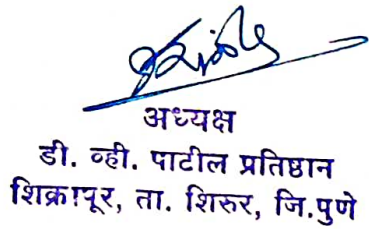 अध्यक्ष
डी. व्ही. पाटील प्रतिष्ठान
शिक्रापूर, ता. शिरुर, जि.पुणे